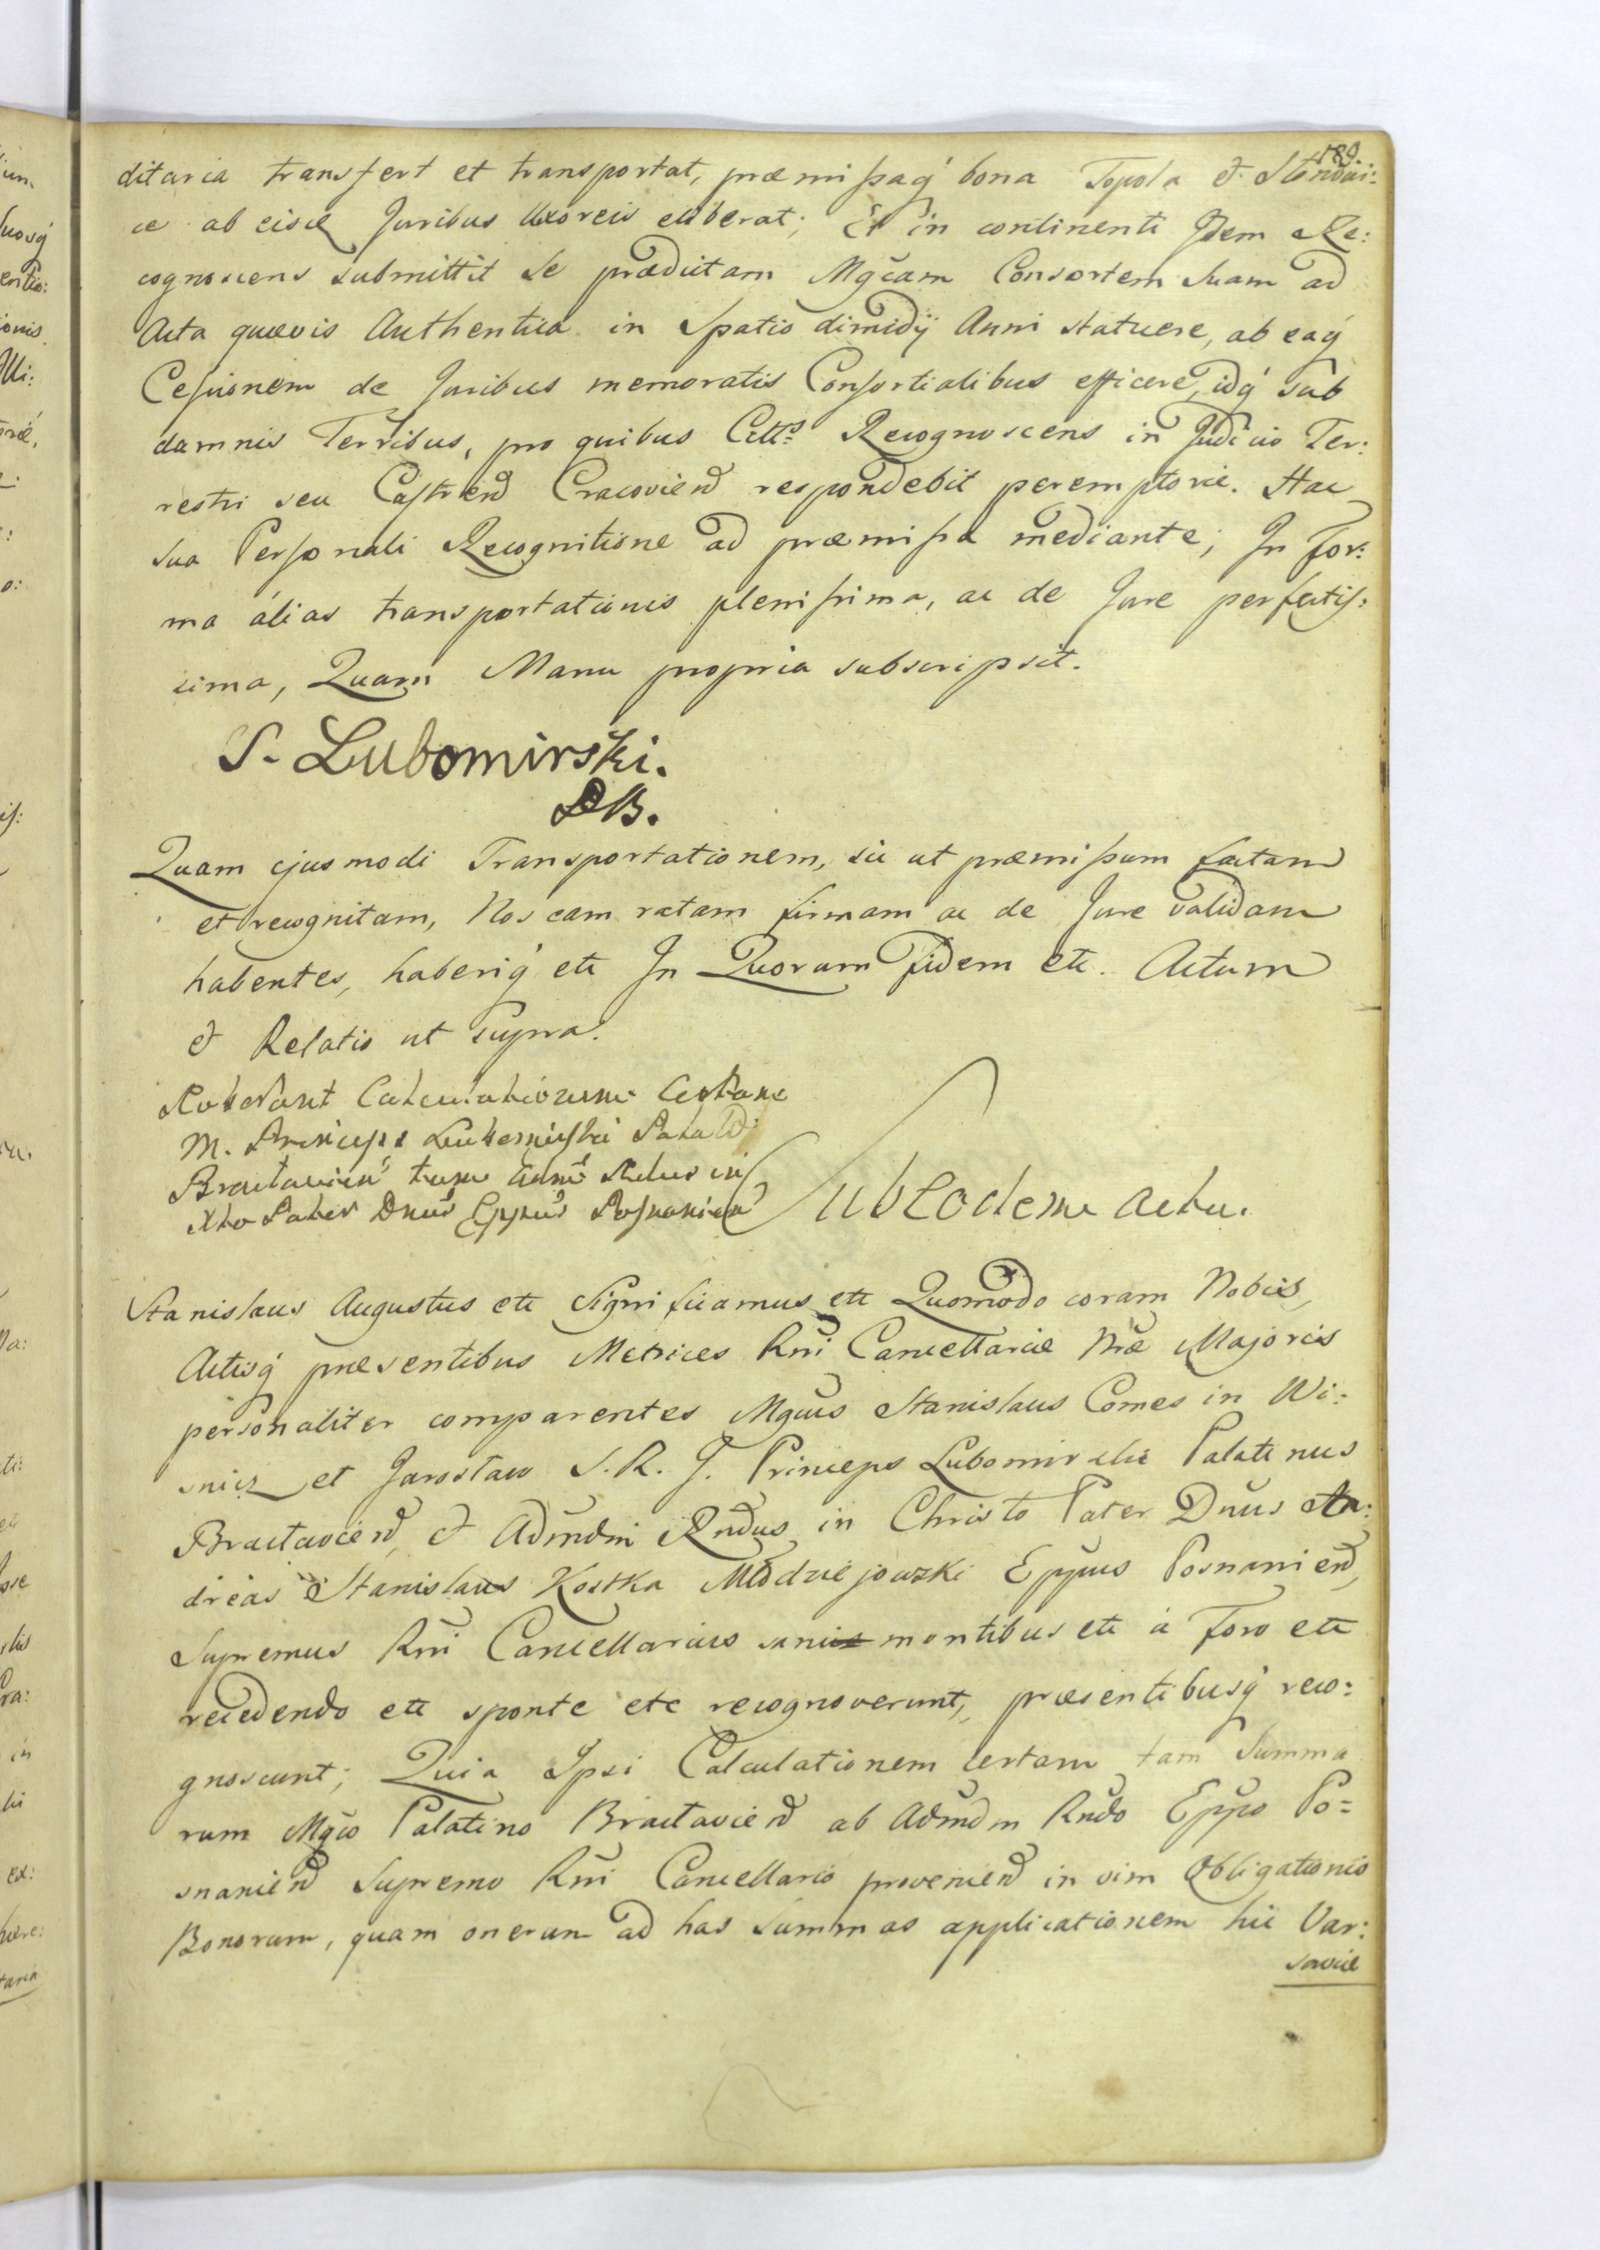 189.
ditaria transfert et transportat, præmissaq́ bona Topola & Stradni:
ce ab eisd Juribus Uxoreis eliberat; Et in continenti Idem Re:
cognoscens submittit se prædictam Mg̃cam Consortem Suam ad
Acta quævis Authentica in Spatio dimidÿ Anni statuere, ab eaq́
Cessionem de Juribus memoratis Consortialibus efficere, idq́ sub
damnis Terribus, pro quibus Citt⁹ Recognoscens in Judicio Ter:
restri seu Castrend Cracoviend respondebit peremptorie. Hac
sua Personali Recognitione ad præmissa mediante; In For:
ma alias transportationis plenissima, ac de Jure perfectis:
sima, Quam Manu propria subscripsit.
S. Lubomirski.
Quam ejusmodi Transportationem, sic ut præmissum factam
et recognitam, Nos eam ratam firmam ac de Jure validam
habentes, haberiq́ etc In Quorum fidem etc. Actum
& Relatio ut supra.
Roborant Calculationum
M. Princeps Lubomirski Palat:
Braclavien tum Adm̃ Rndus in
Xto Pater Dnũs Eppũs Posnanien
Sub eodem actu.
Stanislaus Augustus etc Significamus etc Quomodo coram Nobis,
Actisq́ præsentibus Metrices Rñi Cancellariæ Nræ Majoris
personaliter comparentes Mgcus Stanislaus Comes in Wi:
snicz et Jaroslaw S. R. J. Princeps Lubomirski Palatinus
Braclaviend, & Admdm Rndus in Christo Pater Dnũs An:
dreas Stanislaus Kostka Młodziejowski Eppus Posnaniend,
Supremus Rñi Cancellarius sani montibus etc á Foro etc
recedendo etc sponte etc recognoverunt, præsentibusq́ reco:
gnoscunt; Quia Ipsi Calculationem certam tam Summa
rum Mgco Palatino Braclaviend ab Admdm Rndo Eppo Po=
snaniend Supremo Rñi Cancellario proveniend in vim Obligationis
Bonorum, quam onerum ad has Summas applicationem hic Var:
saviæ